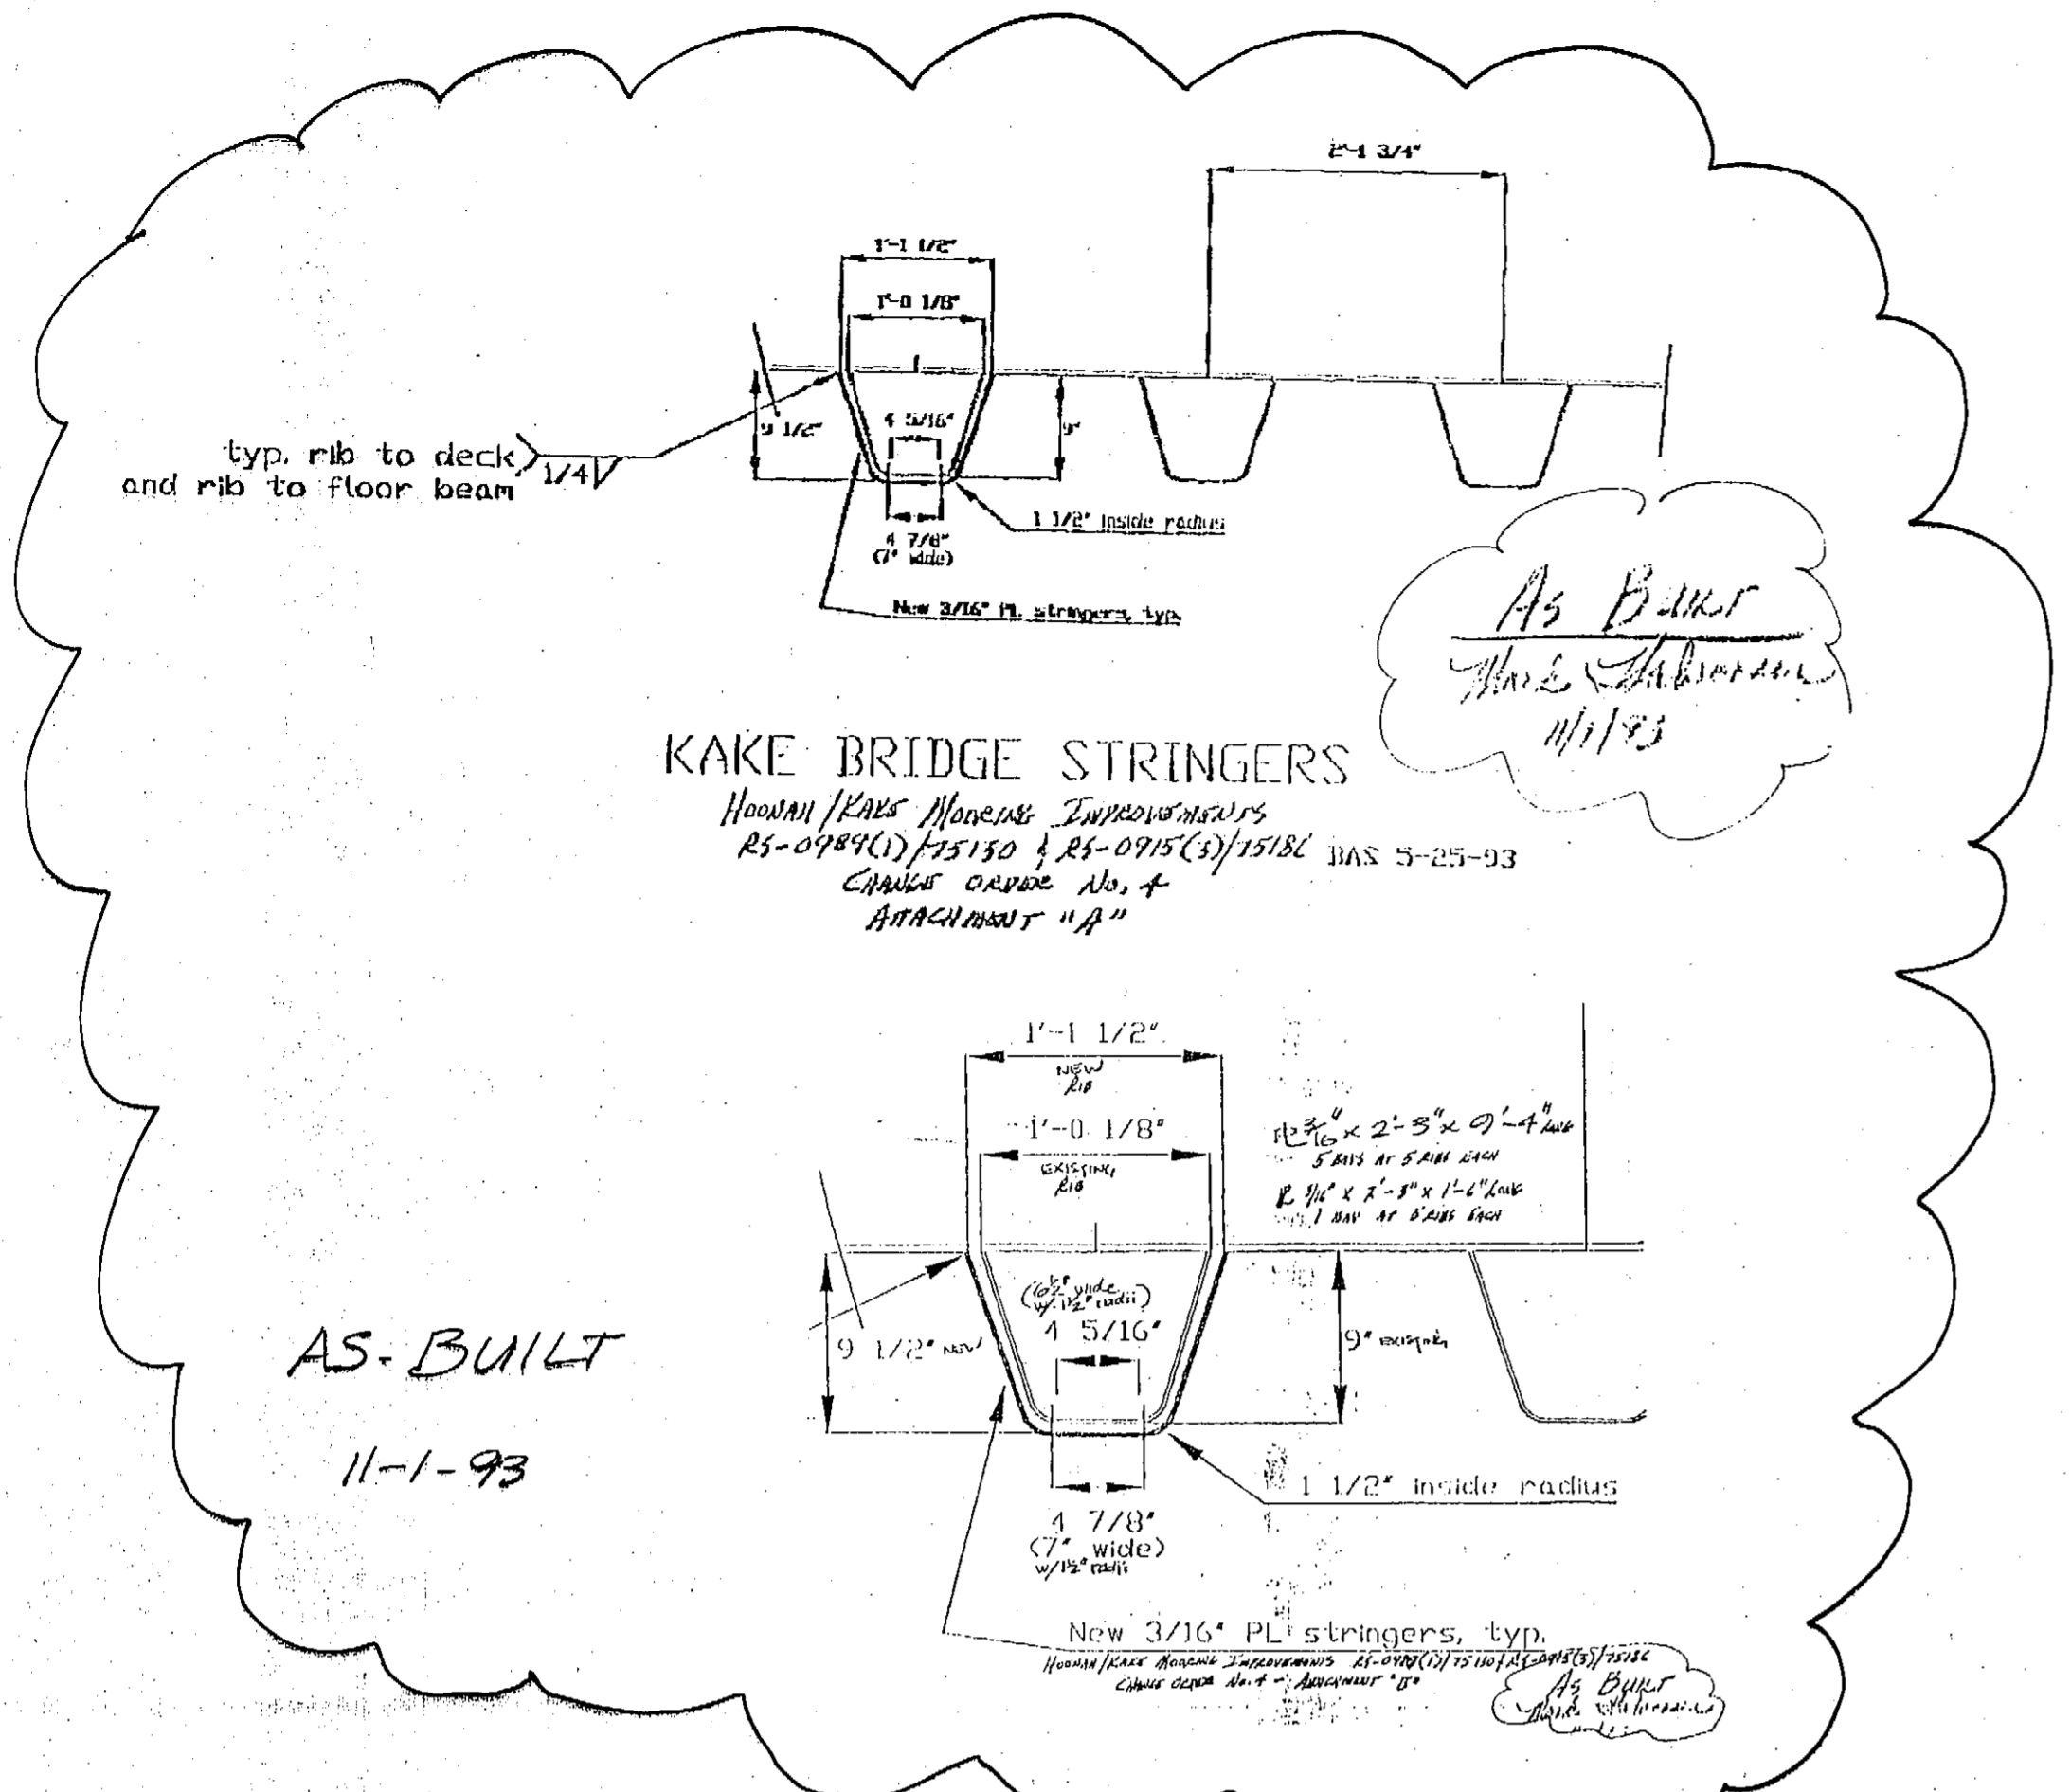 2'-1 3/4"
1'-1 1/2"
1'-0 1/8"
9 1/2"
4 5/16"
9"
typ. rib to deck
and rib to floor beam
1/4
1 1/2" inside radius
4 7/8"
(7" wide)
New 3/16" PL. stringers, typ.
As Built
11/1/93
KAKE BRIDGE STRINGERS
HOONAH/KAKE MOORING IMPROVEMENTS
BAS 5-25-93
CHANGE ORDER No. 4
ATTACHMENT "A"
1'-1 1/2"
NEW
RIB
1'-0 1/8"
EXISTING
RIB
PL 3/16" x 2'-3" x 9'-4" LONG
5 BAYS AT 5 RIBS EACH
PL 3/16" x 2'-3" x 1'-6" LONG
1 BAY AT 5 RIBS EACH
(6 1/2" wide
w/ 1 1/2" radii)
4 5/16"
9 1/2" NEW
9" EXISTING
AS-BUILT
11-1-93
1 1/2" inside radius
4 7/8"
(7" wide)
w/ 1 1/2" radii
New 3/16" PL stringers, typ.
HOONAH/KAKE MOORING IMPROVEMENTS
CHANGE ORDER No. 4 - ATTACHMENT "B"
As Built